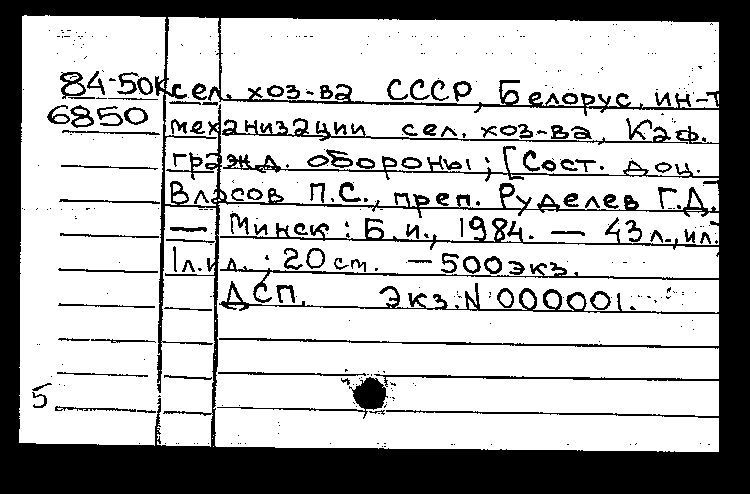 84-50к сел. хоз-ва СССР, Белорус. ин-т
6850 механизации сел. хоз-ва, Каф.
гражд. обороны; [Сост. доц.
Власов П.С., преп. Руделев Г.Д.]
— Минск : Б.и., 1984. — 43 л., ил.,
1 л. ил. ; 20 см. — 500 экз.
ДСП. Экз. N 000001.
5